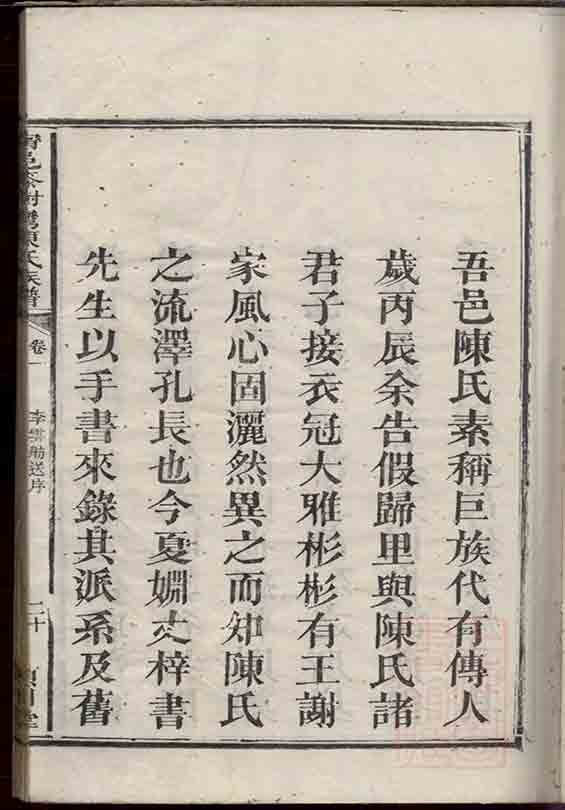 吾邑陳氏素稱巨族代有傳人
歲丙辰余告假歸里與陳氏諸
君子接衣冠大雅彬彬有王謝
家風心固灑然異之而知陳氏
之流澤孔長也今夏姻丈梓書
先生以手書來錄其派系及舊
氏族譜
卷一
李雲舫送序
二十
堂